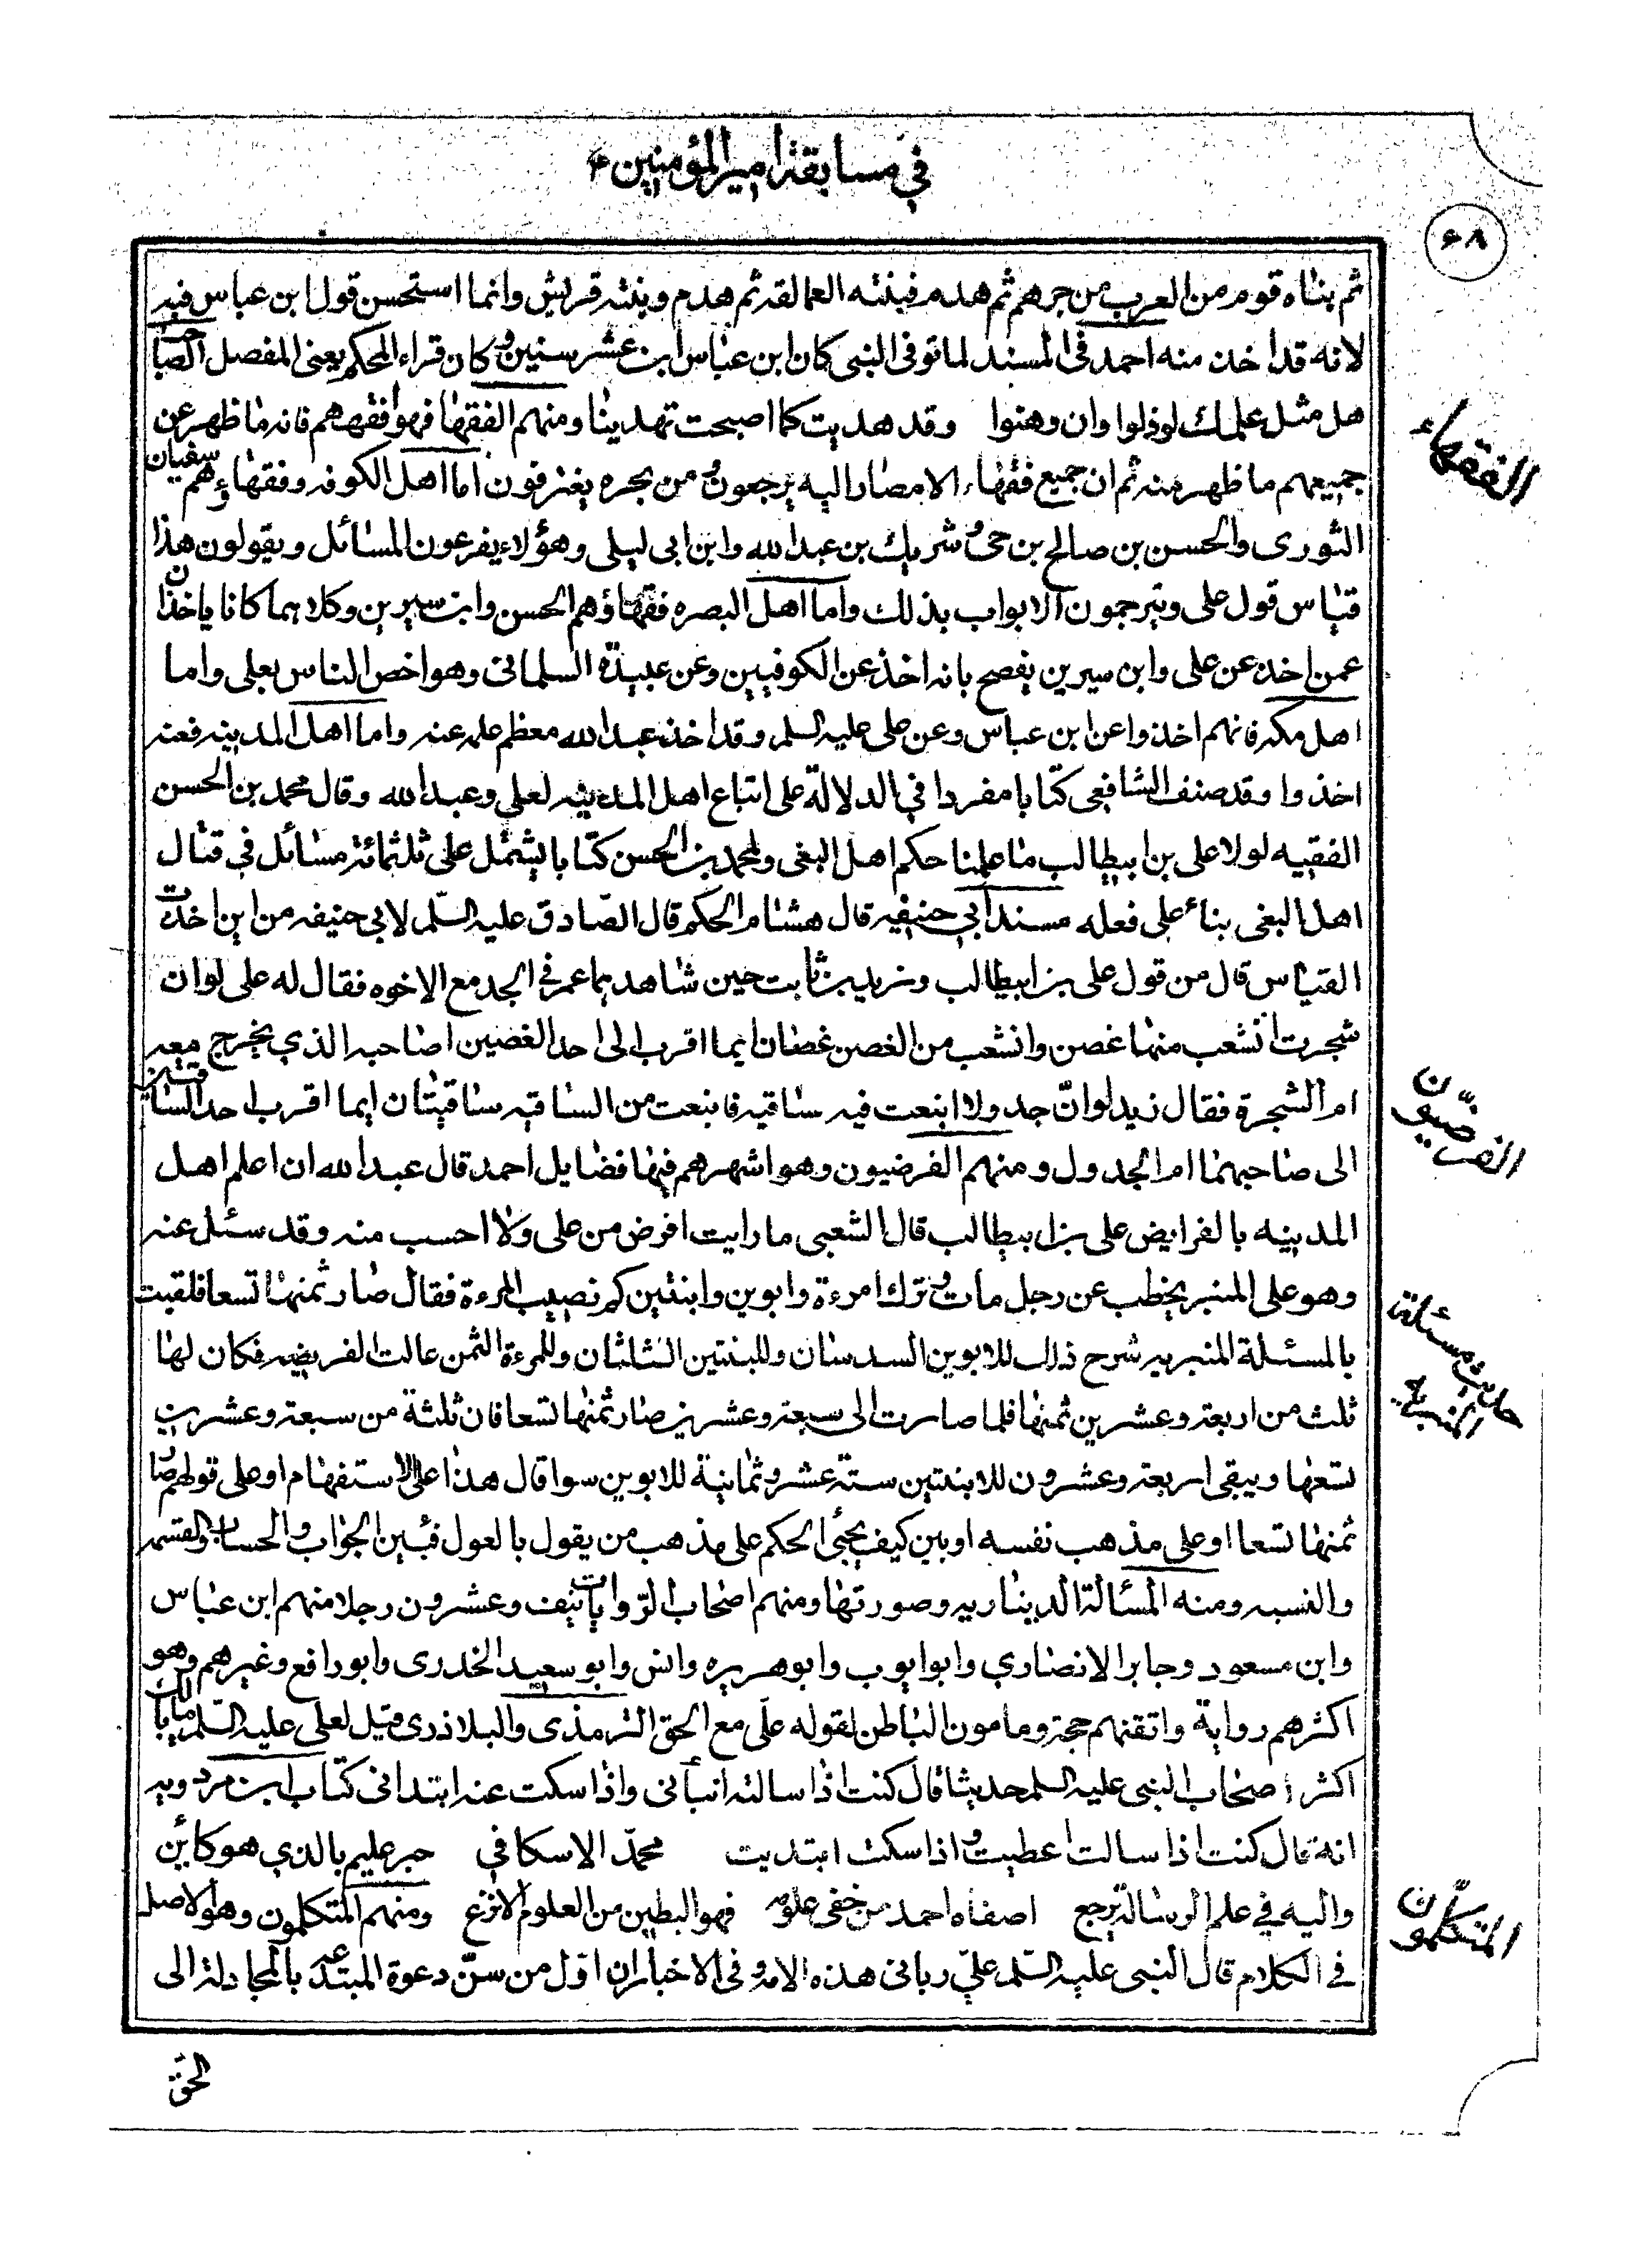 في مسابقة أمير المؤمنين ع
۶۸
ثم بناه قوم من العرب من جرهم ثم هدم فبنته العمالقه ثم هدم وبنته قريش وانما استحسن قول ابن عباس فيه
لانه قد اخذ منه احمد في المسند لما توفى النبى كان ابن عباس ابن عشر سنين وكان قراء المحكم يعنى المفصل الصا
هل مثل علمك لو ذلوا وان وهنوا وقد هديت كما اصبحت تهدينا ومنهم الفقها فهو افقههم فانه ما ظهر عن
الفقهاء
جميعهم ما ظهر منه ثم ان جميع فقهاء الامصار اليه يرجعون ومن بحره يغترفون اما اهل الكوفه وفقهاؤهم سفيان
الثورى والحسن بن صالح بن حى وشريك بن عبد الله وابن ابى ليلى وهؤلاء يفرعون المسائل ويقولون هذا
قياس قول على ويترجمون الابواب بذلك واما اهل البصره فقهاؤهم الحسن وابن سيرين وكلاهما كانا ياخذان
عمن اخذ عن على وابن سيرين يفصح بانه اخذ عن الكوفيين وعن عبيدة السلمانى وهو اخص الناس بعلى واما
اهل مكه فانهم اخذوا عن ابن عباس وعن على عليه السلم وقد اخذ عبد الله معظم علمه عنه واما اهل المدينه فعنه
اخذوا وقد صنف الشافعى كتابا مفردا في الدلالة على اتباع اهل المدينه لعلى وعبد الله وقال محمد بن الحسن
الفقيه لولا على بن ابيطالب ما علمنا حكم اهل البغى ولمحمد بن الحسن كتابا يشتمل على ثلثمائة مسائل في قتال
اهل البغى بناء على فعله مسند ابي حنيفه قال هشام الحكم قال الصادق عليه السّلم لابي حنيفه من اين اخذت
القياس قال من قول على بن ابيطالب وزيد بن ثابت حين شاهدهما عمر في الجد مع الاخوه فقال له على لو ان
شجرت انشعب منها غصن وانشعب من الغصن غصنان ايما اقرب الى احد الغصنين اصاحبه الذي يخرج معه
ام الشجرة فقال زيد لو انّ جدولا انبعث فيه ساقيه فانبعث من الساقيه ساقيتان ايما اقرب احد الساقيتين
الى صاحبهما ام الجدول ومنهم الفرضيون وهو اشهرهم فيها فضايل احمد قال عبد الله ان اعلم اهل
الفرضيّون
المدينه بالفرايض على بن ابيطالب قال الشعبى ما رايت افرض من على ولا احسب منه وقد سئل عنه
وهو على المنبر يخطب عن رجل مات وترك امرءة وابوين وابنتين كم نصيب المرءة فقال صار ثمنها تسعا فلقبت
المنبرية
بالمسئلة المنبريه شرح ذلك للابوين السدسان وللبنتين الثلثان وللمرءة الثمن عالت الفريضه فكان لها
ثلث من اربعة وعشرين ثمنها فلما صارت الى سبعة وعشرين صار ثمنها تسعا فان ثلثة من سبعة وعشرين
تسعها ويبقى اربعة وعشرون للابنتين ستة عشر وثمانية للابوين سوا قال هذا على الاستفهام او على قولهم صا
ثمنها تسعا او على مذهب نفسه او بين كيف يجئ الحكم على مذهب من يقول بالعول فبين الجواب والحساب والقسمه
والنسبه ومنه المسألة الديناريه وصورتها ومنهم اصحاب الرّوايات نيف وعشرون رجلا منهم ابن عباس
وابن مسعود وجابر الانصاري وابو ايوب وابو هريره وانس وابو سعيد الخدرى وابو رافع وغيرهم وهو
اكثرهم رواية واتقنهم حجة ومامون الباطن لقوله علّى مع الحق الترمذى والبلاذرى وقيل لعلى عليه السّلم ما بالك
اكثر اصحاب النبى عليه السلم حديثا قال كنت اذا سالته انبأنى واذا سكت عنه ابتدانى كتاب ابن مردويه
انه قال كنت اذا سالت اعطيت واذا سكت ابتديت محمّد الاسكافي حبر عليم بالذي هو كائن
واليه في علم الرسالة يرجع اصفاه احمد من خفى علومه فهو البطين من العلوم الانزع ومنهم المتكلمون وهو الاصل
المتكلّمون
في الكلام قال النبى عليه السّلم علّي ربانى هذه الامه وفى الاخبار ان اوّل من سنّ دعوة المبتدعه بالمجادلة الى
الحقّ